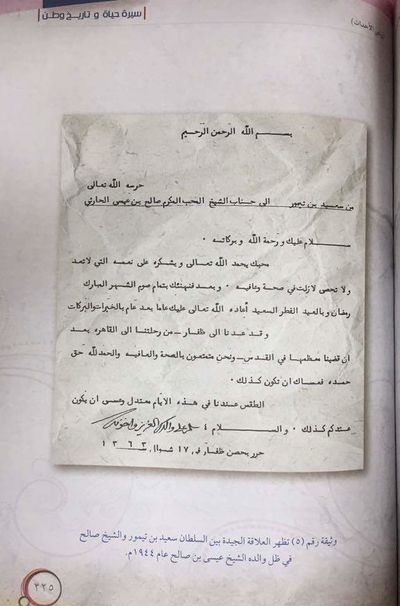 سيرة حياة و تاريخ وطن
بسم الله الرحمن الرحيم
حرسه الله تعالى
من سعيد بن تيمور الى جناب الشيخ المحب المكرم صالح بن عيسى الحارثي
سلام عليك و رحمة الله و بركاته .
محبك يحمد الله تعالى و يشكره على نعمه التي لاتعد
ولا تحصى لازلت في صحة وعافيه . و بعد فنهنئك بتمام صوم الشهر المبارك
رمضان و بالعيد الفطر السعيد أعاده الله تعالى عليك عاما بعد عام بالخيرات والبركات
و قد عدنا الى ظفار - من رحلتنا الى القاهره بعد
ان قضينا معظمها في القدس - ونحن متمتعون بالصحة والعافيه والحمد لله حق
حمده فعساك ان تكون كذلك .
الطقس عندنا في هذه الايام معتدل وعسى ان يكون
عندكم كذلك . و السلام ٤
حرر بحصن ظفار في ١٧ شوال ١٣٦٣
وثيقة رقم (٥) تظهر العلاقة الجيدة بين السلطان سعيد بن تيمور والشيخ صالح
في ظل والده الشيخ عيسى بن صالح عام ١٩٤٤م.
٣٢٥